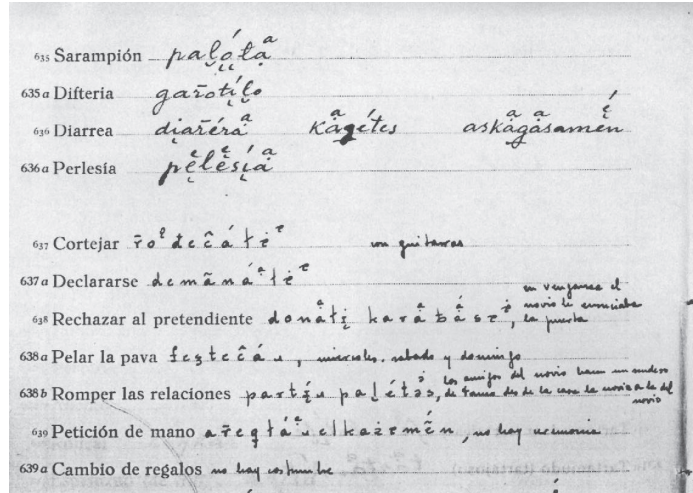 635 Sarampión palǫ́tạᵃ
635 a Difteria gar̄otílo
636 Diarrea diar̄érạᵃ kạᵃgétes askạᵃgạᵃsamén
636 a Perlesía pẹlẹsíạᵃ
637 Cortejar con guitarras
637 a Declararse
638 Rechazar al pretendiente en venganza el novio le ensuciaba la puerta
638 a Pelar la pava festečáɹ, miercoles, sabado y domingo
638 b Romper las relaciones los amigos del novio hacen un sendero de desde la casa la novia a la del novio
639 Petición de mano no hay ceremonia
639 a Cambio de regalos no hay costumbre